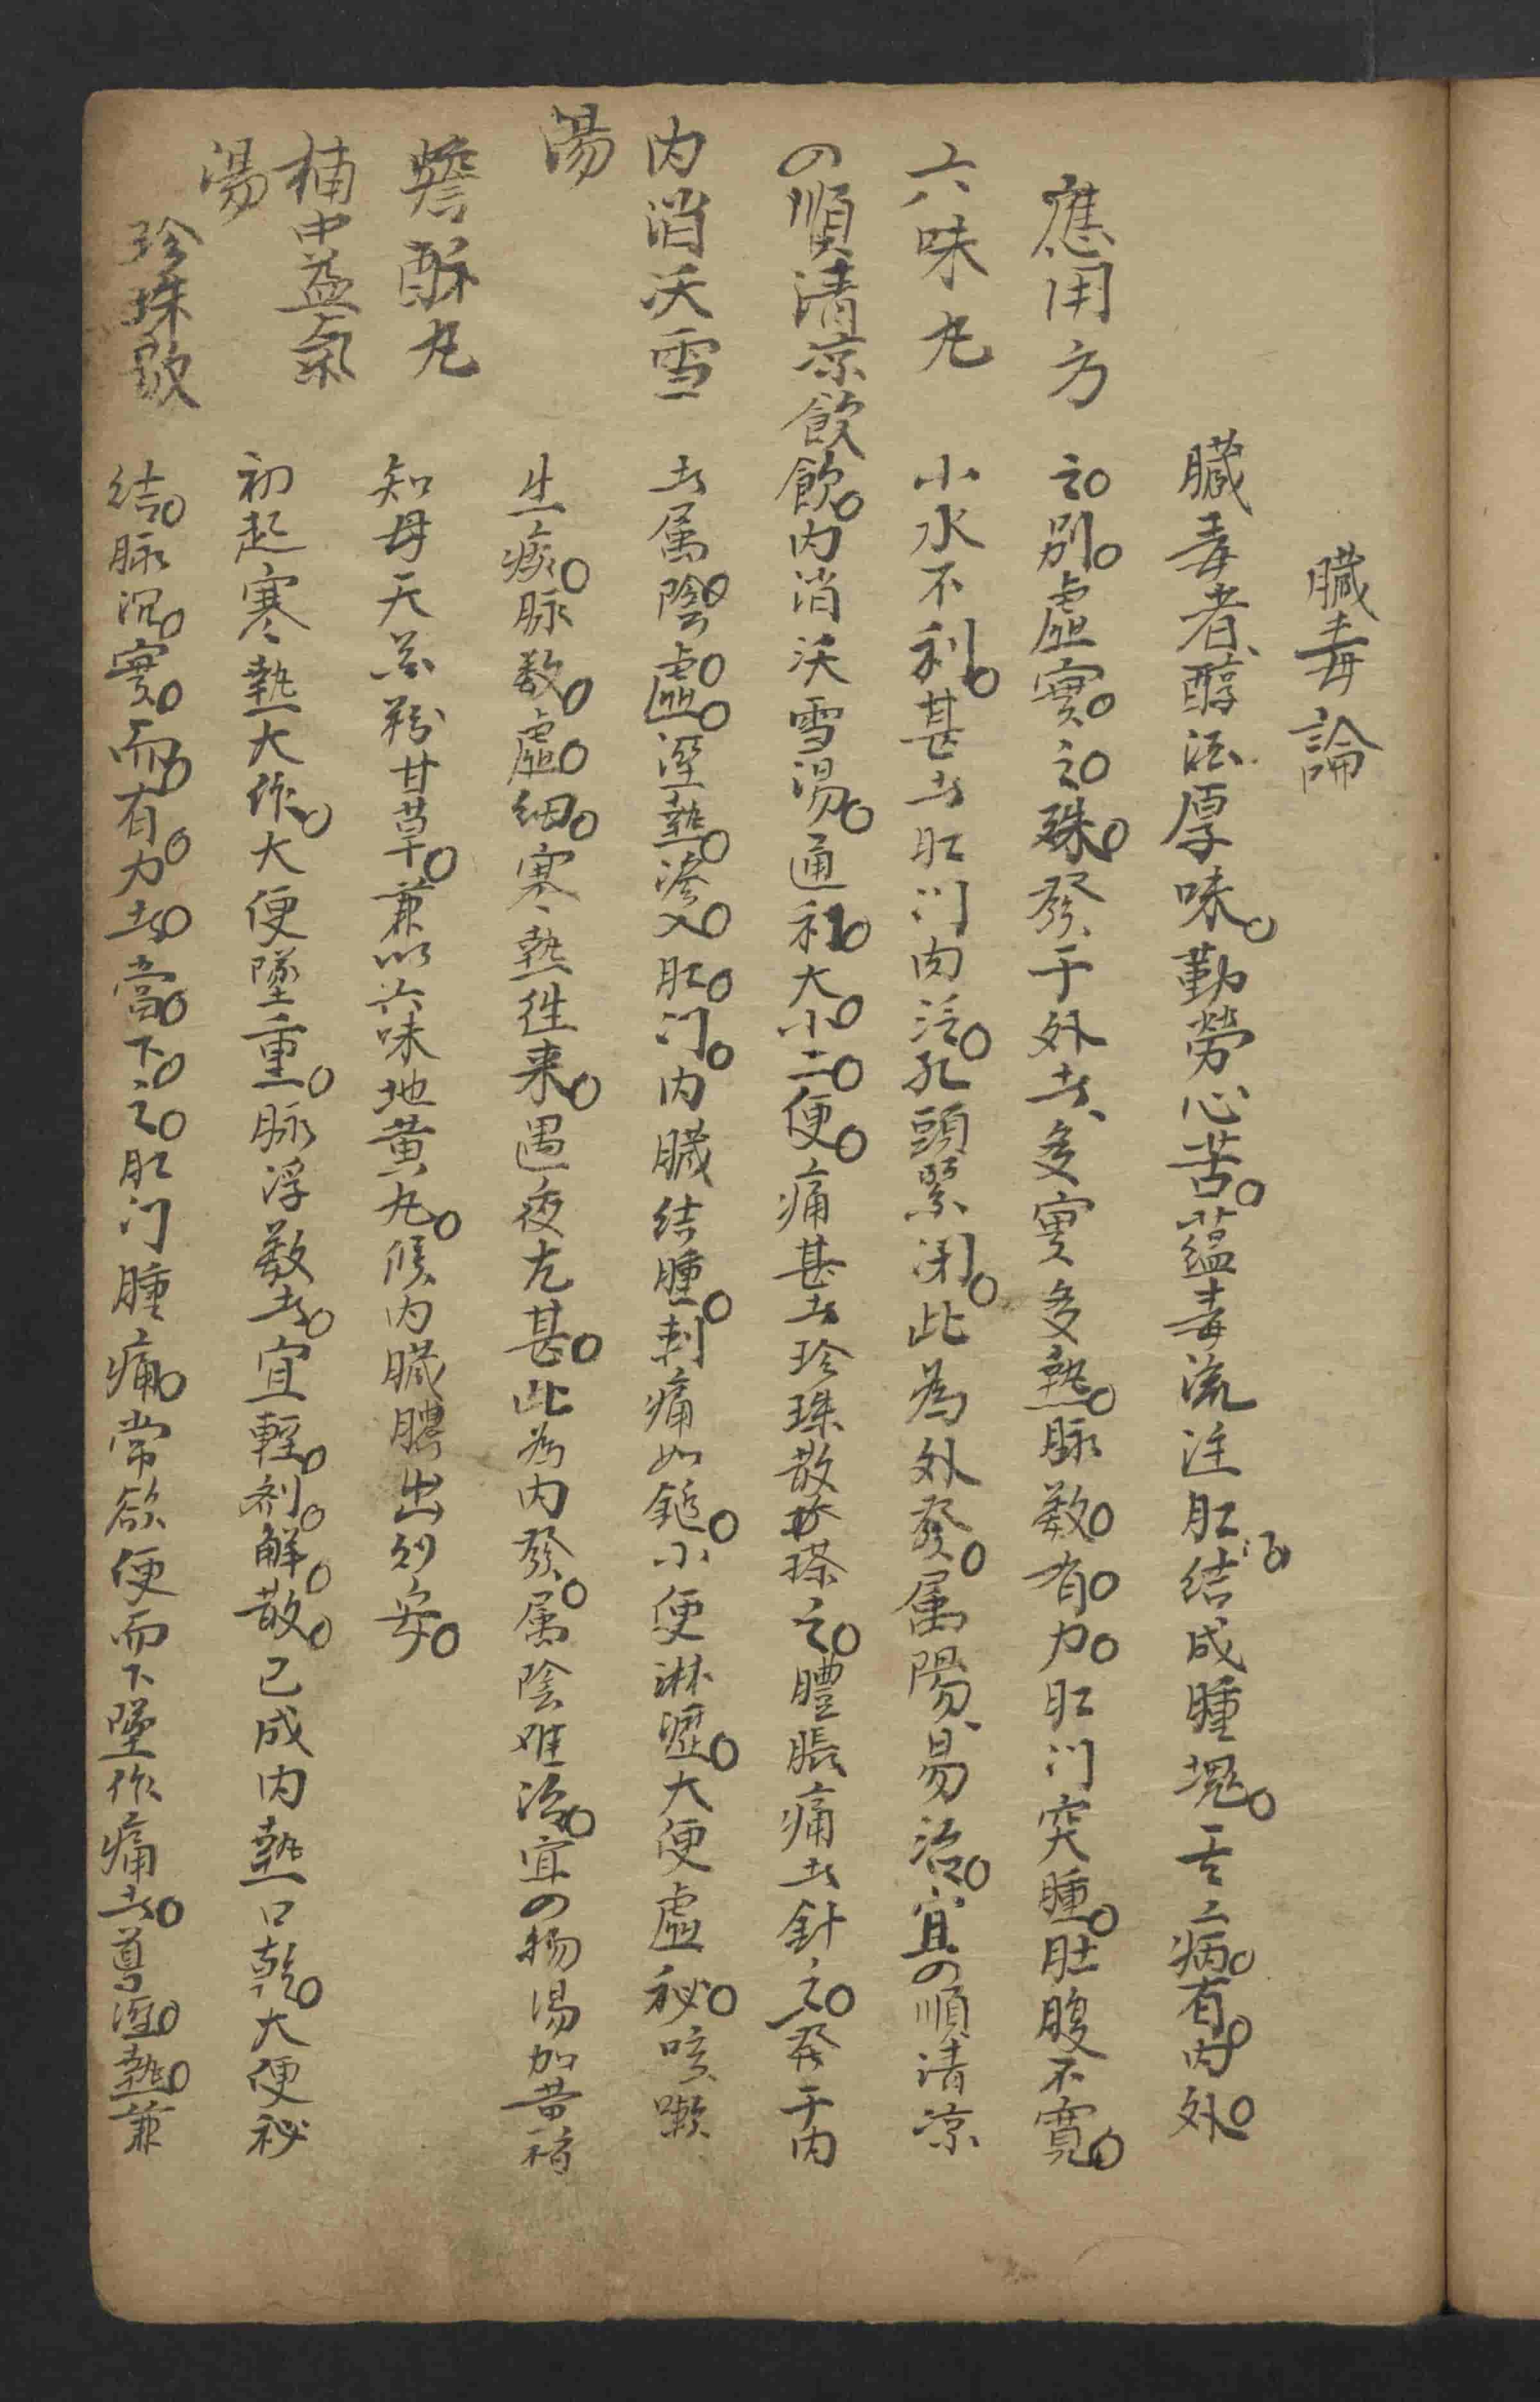 臟毒論
臟毒者、醇酒厚味。勤勞心苦。蘊毒流注肛门。結成腫塊。病。有。内。外。
之。别。虛實。之。殊。發于外者、多實多熱。脉数。有。力。肛门突腫。肚腹不寬。
小水不利。甚者肛门肉泛。孔頭緊闭。此為外發。属陽、易治。宜の順清凉
飲。内消沃雪湯。通利。大。小。二。便。痛甚者珍珠散搽之。體脹痛者針之。發于内
者属陰。虛。溼熱。渗入。肛。门。内臟結腫。刺痛如錐。小便淋瀝。大便虛秘。咳嗽
生痰。脉数。虛。細。寒熱徃来。遇夜尤甚。此為内發。属陰难治。宜の物湯加黄栢
知母天花粉甘草。兼以六味地黄丸。候内臟膿出則安。
初起寒熱大作。大便墜重。脉浮数者。宜輕。剂。解。散。已成内熱口乾。大便秘
結。脉沉。實。而。有。力。者。當。下。之。肛门腫痛。常欲便而下墜作痛者。導溼。熱。兼
應用方
六味丸
の順清凉飲
内消沃雪
湯
蟾酥丸
補中益氣
湯
珍珠散